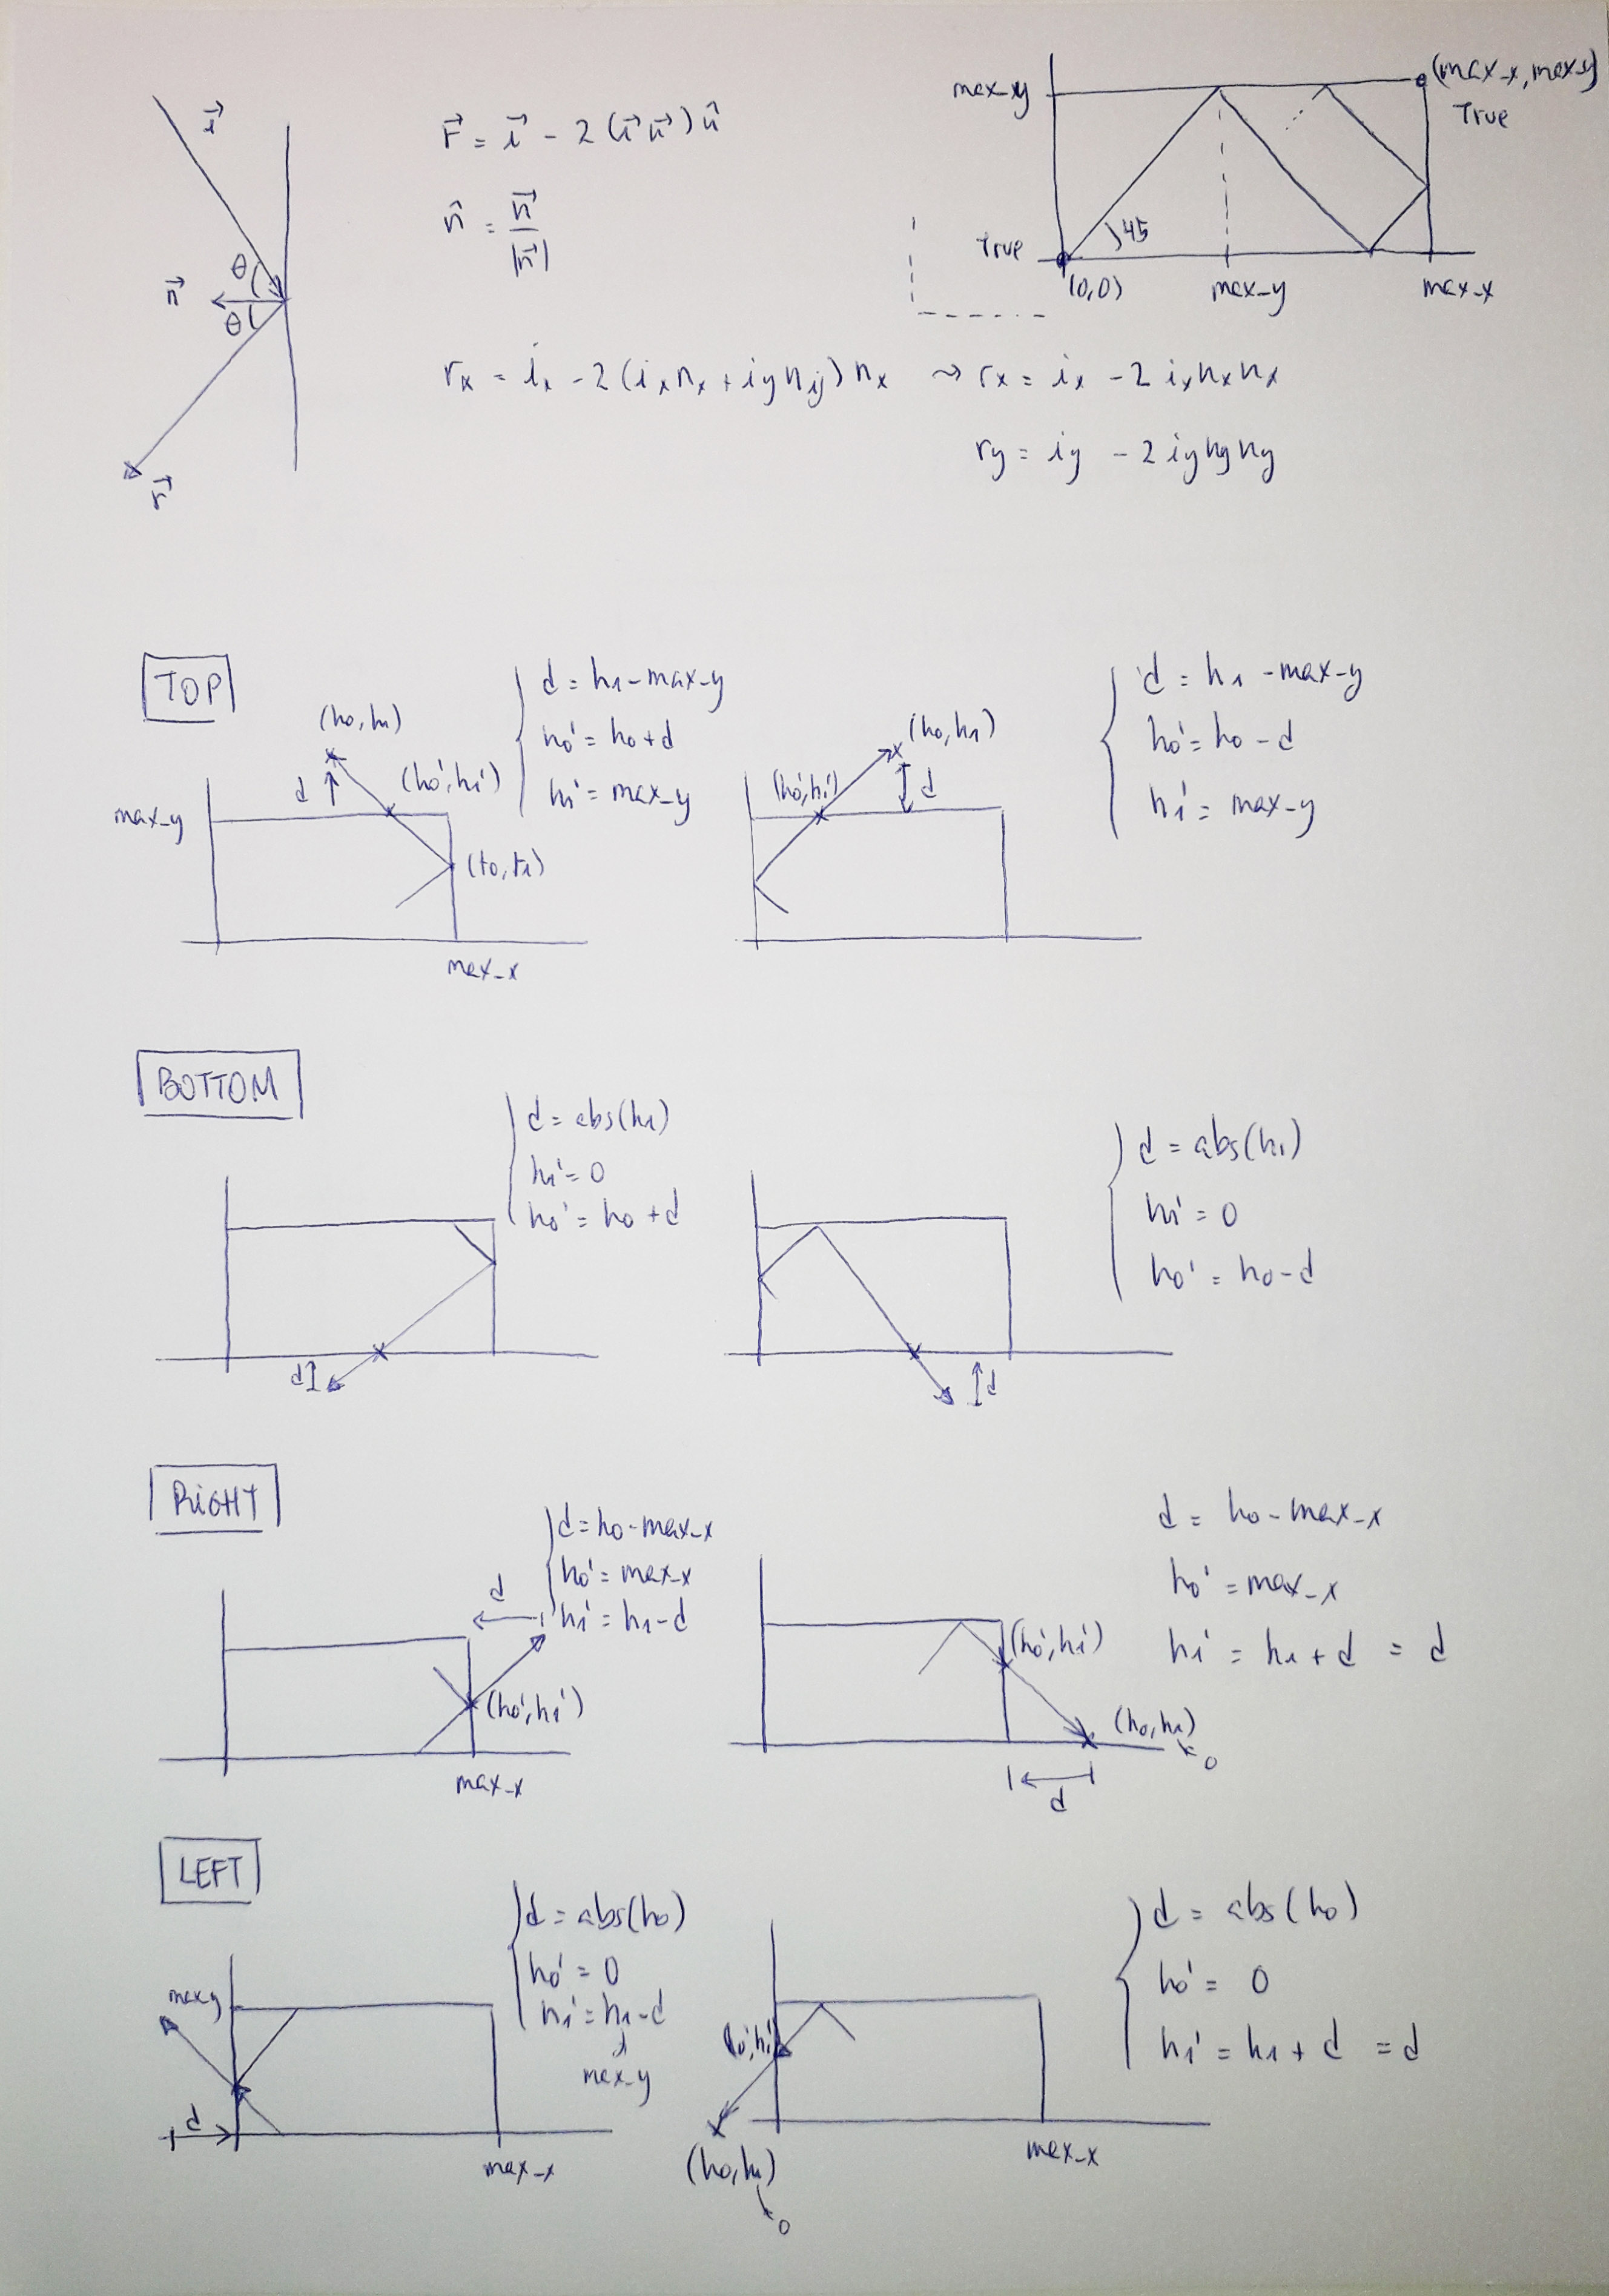 i⃗
r⃗ = i⃗ - 2 (i⃗ n⃗) n⃗
n⃗ = n⃗ / |n⃗|
θ
n⃗
θ
r⃗
max_y
(max_x, max_y)
True
True
45
(0,0)
max_y
max_x
rx = ix - 2 (ix nx + iy ny) nx ⤳ rx = ix - 2 ix nx nx
ry = iy - 2 iy ny ny
TOP
(h0, h1)
d
(h0', h1')
max_y
(t0, t1)
max_x
d = h1 - max_y
h0' = h0 + d
h1' = max_y
(h0, h1)
(h0', h1')
d
d = h1 - max_y
h0' = h0 - d
h1' = max_y
BOTTOM
d = abs(h1)
h1' = 0
h0' = h0 + d
d
d
d = abs(h1)
h1' = 0
h0' = h0 - d
RIGHT
d = h0 - max_x
h0' = max_x
h1' = h1 - d
d
(h0', h1')
max_x
(h0', h1')
(h0, h1)
0
d
d = h0 - max_x
h0' = max_x
h1' = h1 + d = d
LEFT
d = abs(h0)
h0' = 0
h1' = h1 - d
max_y
max_y
d
max_x
(h0', h1')
(h0, h1)
0
max_x
d = abs(h0)
h0' = 0
h1' = h1 + d = d